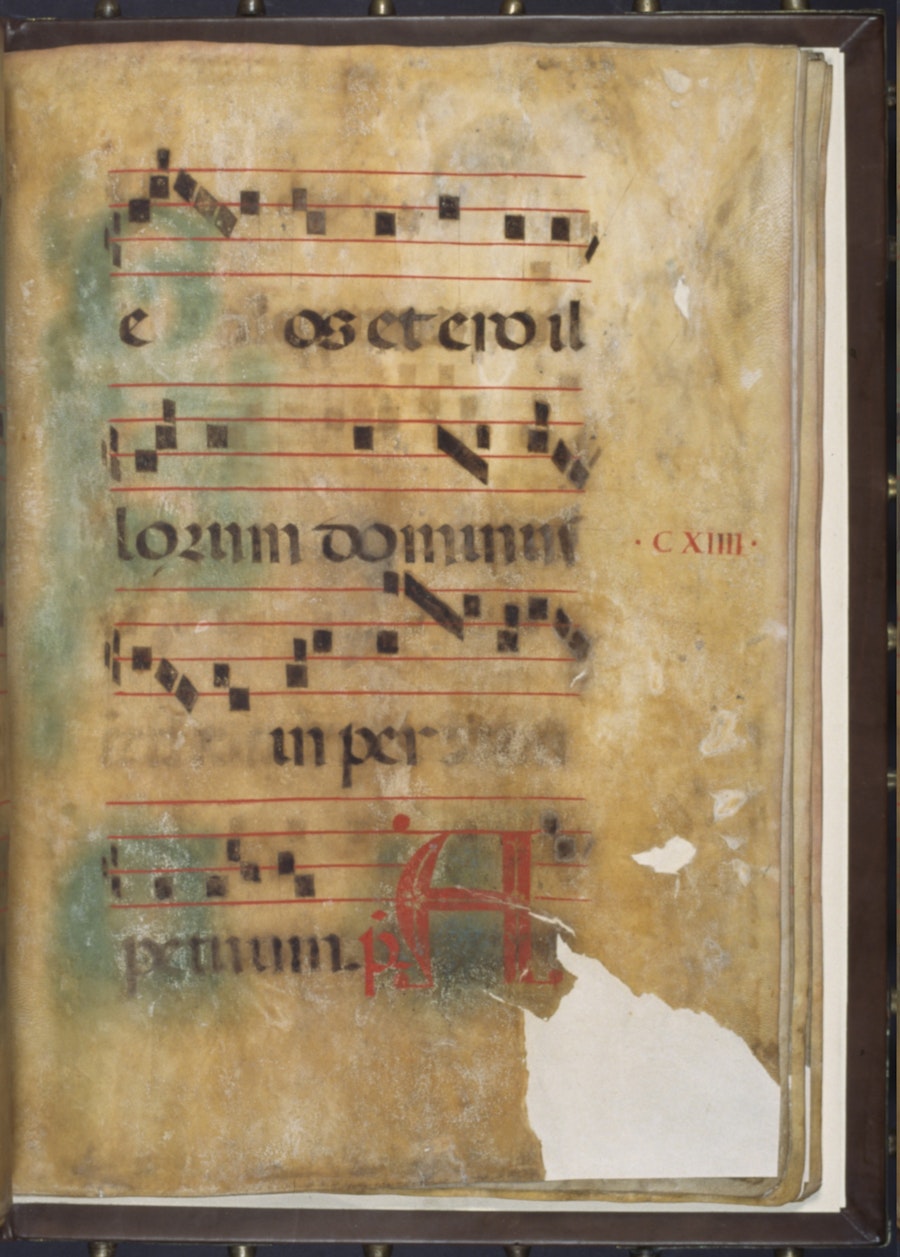 e os et ero il
lorum dominus
in per
petuum. p̄s A
· C XIIII ·